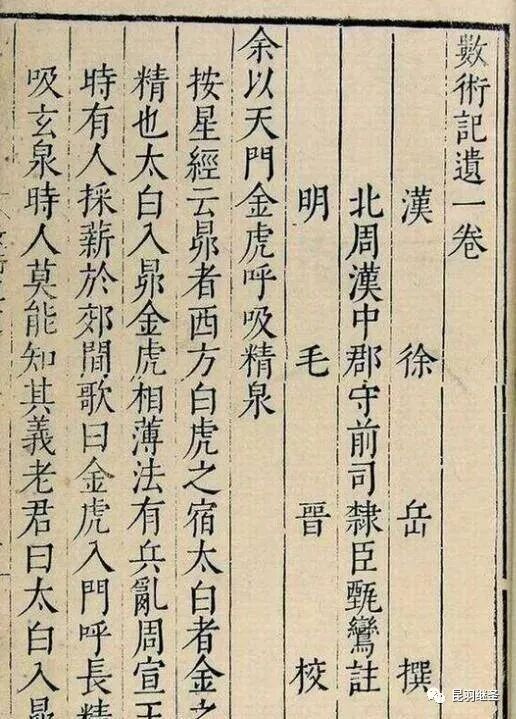 數術記遺一卷
漢徐岳撰
北周漢中郡守前司隸臣甄鸞註
明毛晉校
余以天門金虎呼吸精泉
按星經云昴者西方白虎之宿太白者金之
精也太白入昴金虎相薄法有兵亂周宣王
時有人採薪於郊間歌曰金虎入門呼長精
吸玄泉時人莫能知其義老君曰太白入昴
昆羽继圣